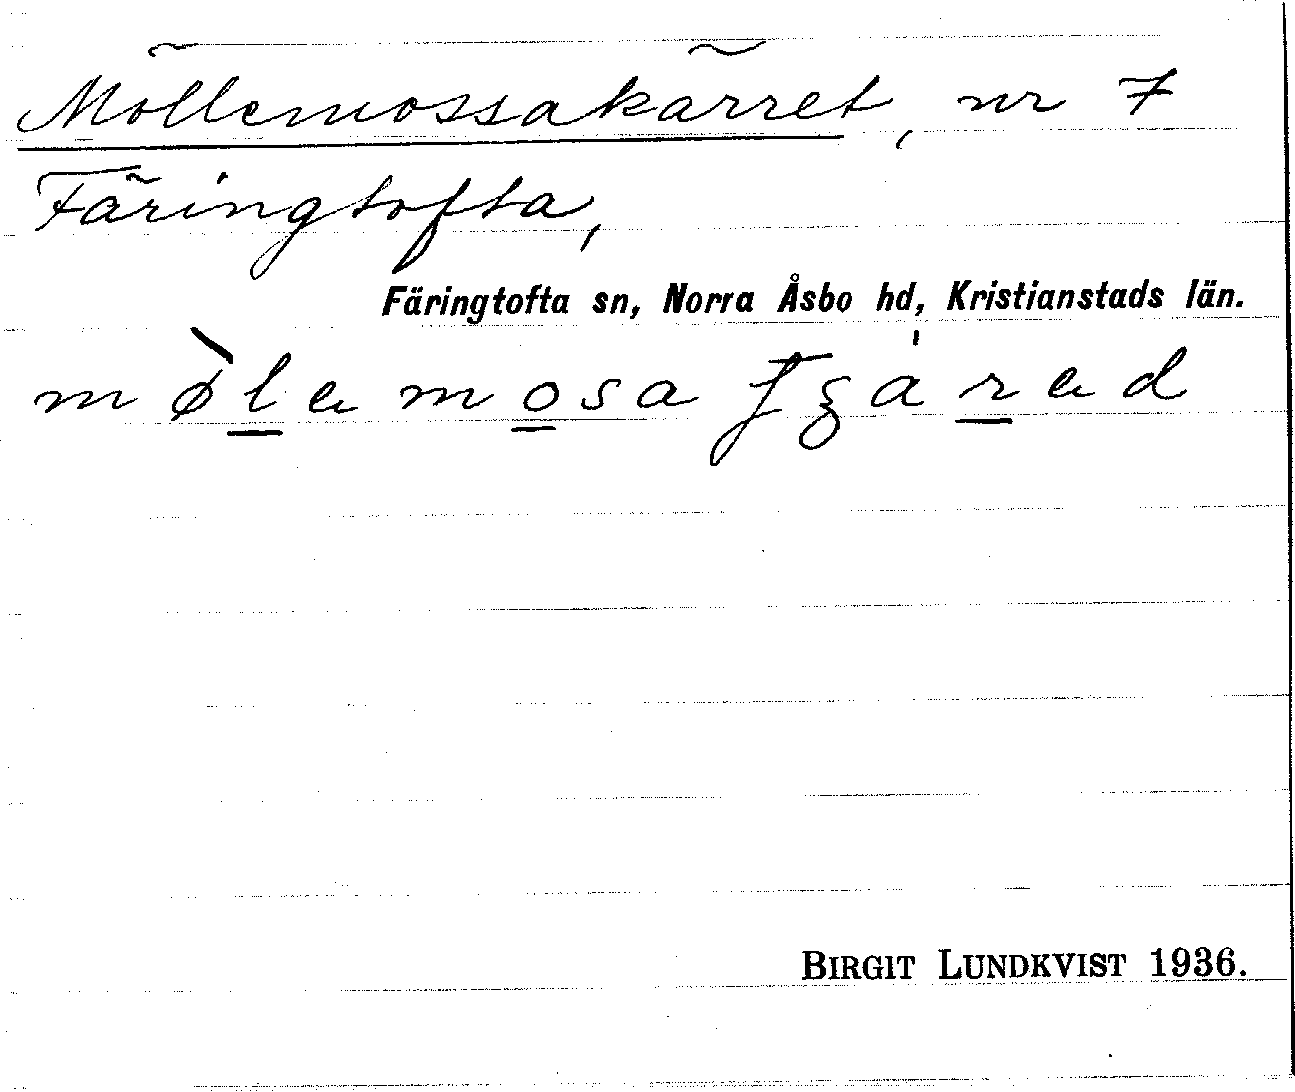 Möllemossakärret, nr 7
Färingtofta,
Färingtofta sn, Norra Åsbo hd, Kristianstads län.
mø̀l̲emo̲sa
BIRGIT LUNDKVIST 1936.